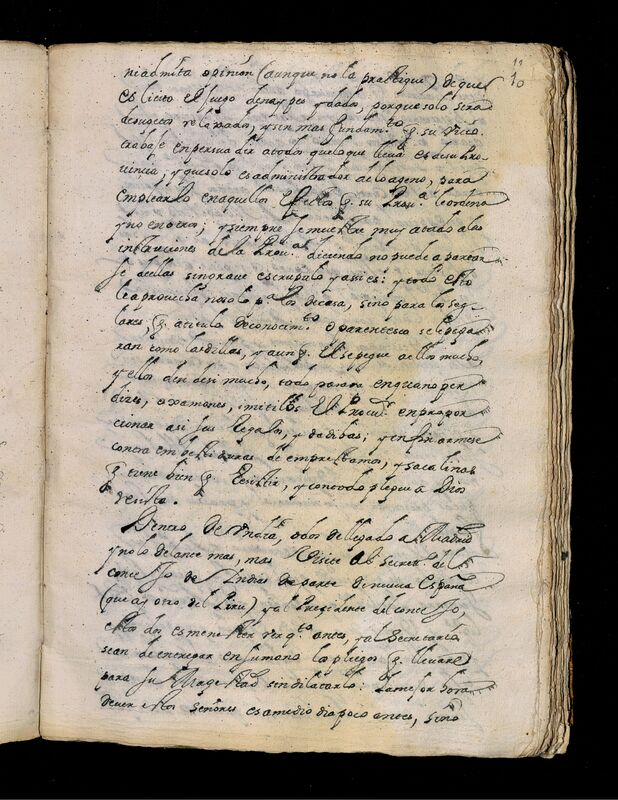 11
10
ni admita opinion (aunque no la practique) de que
es licito el juego de naypes y dados, porque solo sera
de sugetos relaxados, y sin mas fundam.to q. su vicio.
trabaje en persuadir a todos que lo que lleva es de su Pro-
vincia, y que solo es administrador de lo ageno, para
emplearlo en aquellos effectos q. su Prov.a le ordena
y no en otros; y siempre se muestre muy atado a las
instruciones de la Prov.a diciendo no puede apartar
se dellas sin grave escrupulo y assi es: y todo esto
le aprovecha no solo p.a los de casa, sino para los seg-
lares, q. a titulo de conocim.to o parentesco se le pega-
ran como ladillas, y aunq. El se pegue a ellos mucho,
y ellos den de si mucho, todo parara en quatro per
dizes, o xamones, imitelos El Procu.r en propor
cionar assi sus Regalos, y dadibas; y en fin armese
contra embestiduras de emprestamos, y sacalinas
q. tiene bien q. Resistir, y con todo plegue a Dios
resista.
Dentro de una ora, o dos de llegado a Madrid
y no lo delate mas, mas visite al secret.o del
consejo de Indias de parte de nueva España
(que ay otro del Piru) y al Presidente del consejo,
estos dos es menester ver q.to antes, y al Secretario
sean de entregar en su mano los pliegos q. llevare
para su Magestad sin dilatarlo: la mejor hora
de ver estos señores es a medio dia poco antes, sino